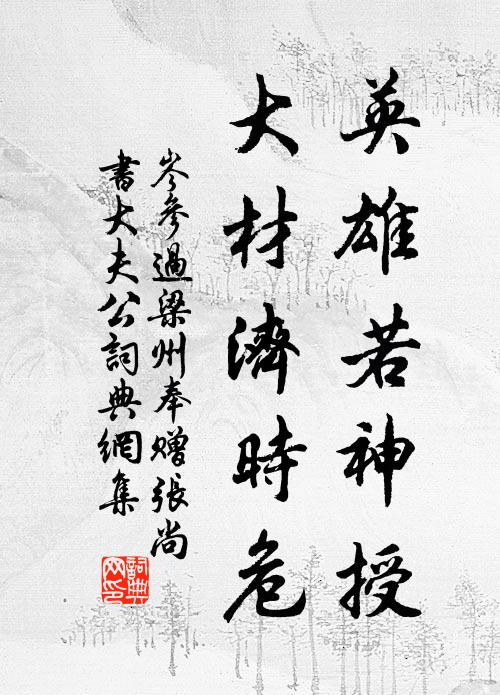 英雄若神授
大材濟時危
岑參過梁州奉贈張尚
書大夫公詞典網集
詞典网印